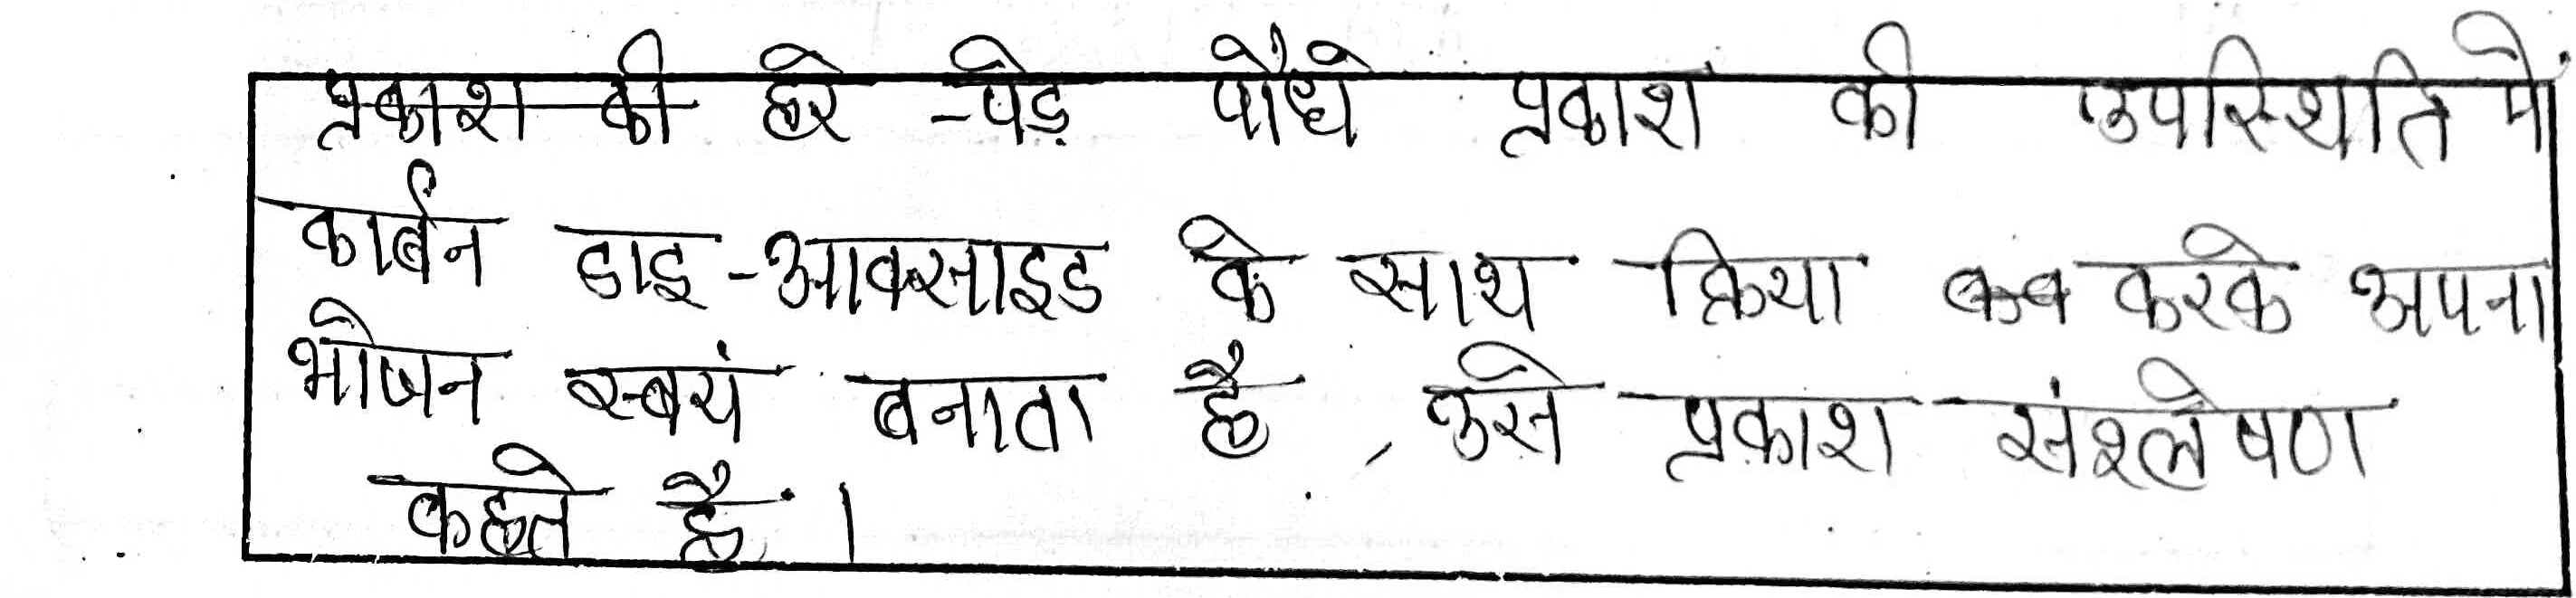 हरे -पेड़ पौधे प्रकाश की उपस्थिति में
कार्बन डाइ-आक्साइड के साथ क्रिया करके अपना
भोजन स्वयं बनाता है , उसे प्रकाश संश्लेषण
कहते है ।